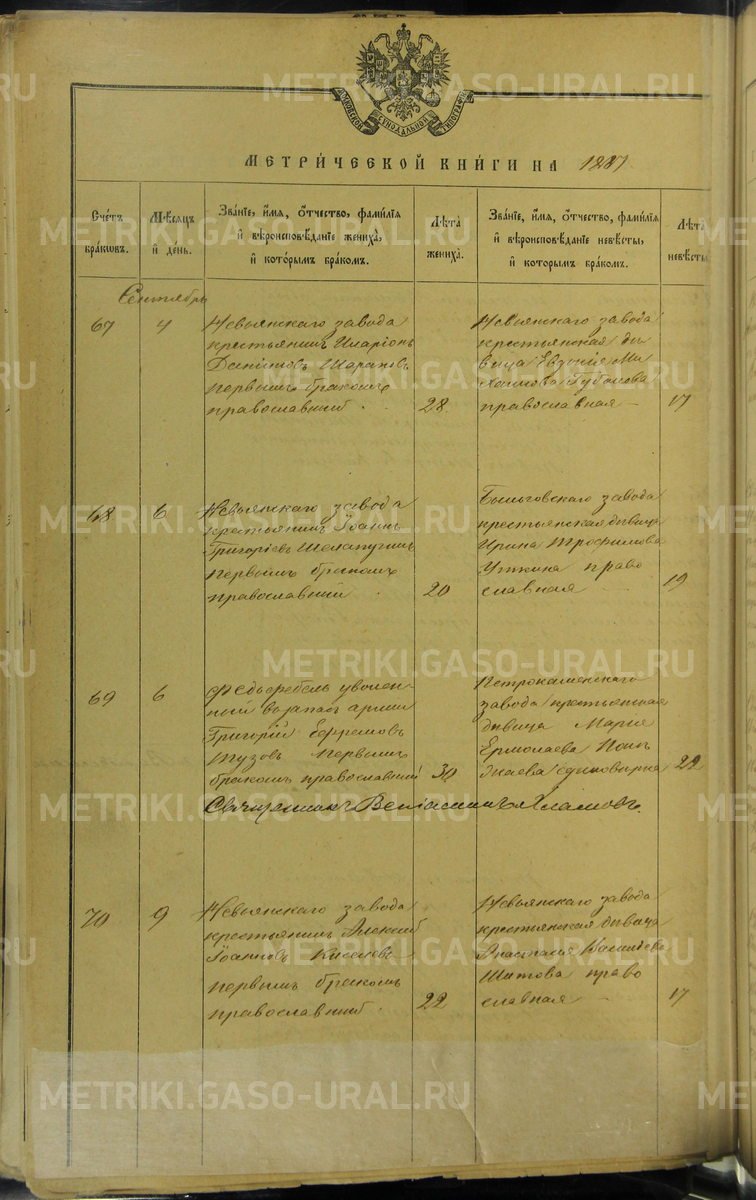 МОСКОВСКОЙ СИНОДАЛЬНОЙ ТИПОГРАФІИ
МЕТРИ́ЧЕСКОЙ КНИ́ГИ НА 1887
Сче́тъ бра́ковъ.
Мѣ́сяцъ и҆ де́нь.
Зва́нїе, и҆́мя, ѻ҆́тчество, фами́лїя и҆ вѣроисповѣ́данїе жениха̀, и҆ кото́рымъ бра́комъ.
Лѣта̀ жениха̀.
Зва́нїе, и҆́мя, ѻ҆́тчество, фами́лїя и҆ вѣроисповѣ́данїе невѣ́сты, и҆ кото́рымъ бра́комъ.
Лѣта̀ невѣ́сты
Сентябрь
67
4
Невьянскаго завода
крестьянинъ Иларіонъ
Даниловъ Шараповъ
первымъ бракомъ
православный
28
Невьянскаго завода
крестьянская дѣ
вица Евдокія Ма
Губанова
православная
17
68
6
Невьянскаго завода
крестьянинъ Іоаннъ
Григоріевъ Шелапугинъ
первымъ бракомъ
православный
20
Быньговскаго завода
крестьянская дѣвица
Ирина Трофимова
Уткина право
славная
19
69
6
Фельдфебель уволен
ный въ запасъ арміи
Григорій Ефремовъ
Тузовъ первымъ
бракомъ православный
30
Петрокаменскаго
завода крестьянская
дѣвица Марія
Ермолаева
единовѣрка
22
Священникъ Веніаминъ Хламовъ
70
9
Невьянскаго завода
крестьянинъ Алексій
Іоанновъ Киселевъ
первымъ бракомъ
православный
22
Невьянскаго завода
крестьянская дѣвица
Анастасія Васильева
Шитова право
славная
17
METRIKI.GASO-URAL.RU